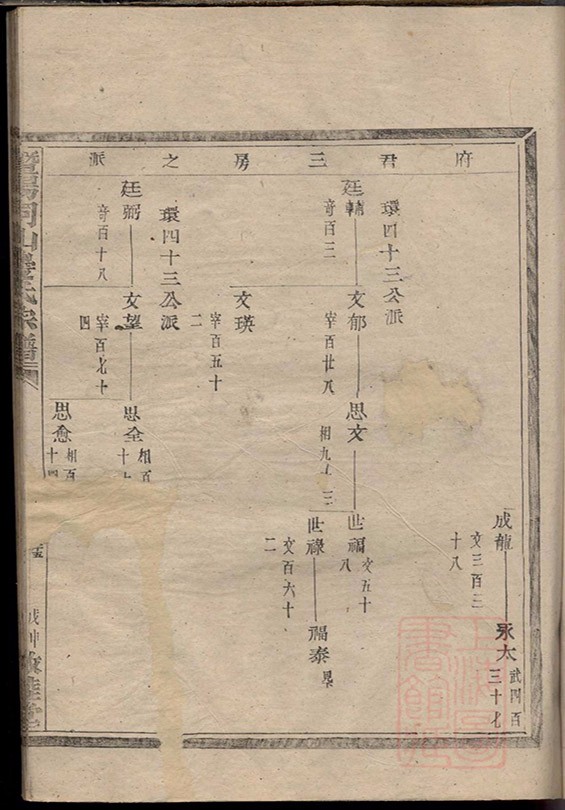 府君三房之派
成龍
文三百三
十八
永太
武四百
三十七
環四十三公派
廷輔
奇百三
文郁
宰百廿八
思文
相九十
三
世福
文五十
八
世祿
文百六十
二
福泰
文瑛
宰百五十
二
環四十三公派
廷弼
奇百十八
文望
宰百七十
四
思全
相百
十
思愈
相百
十四
山
氏宗譜
戊申